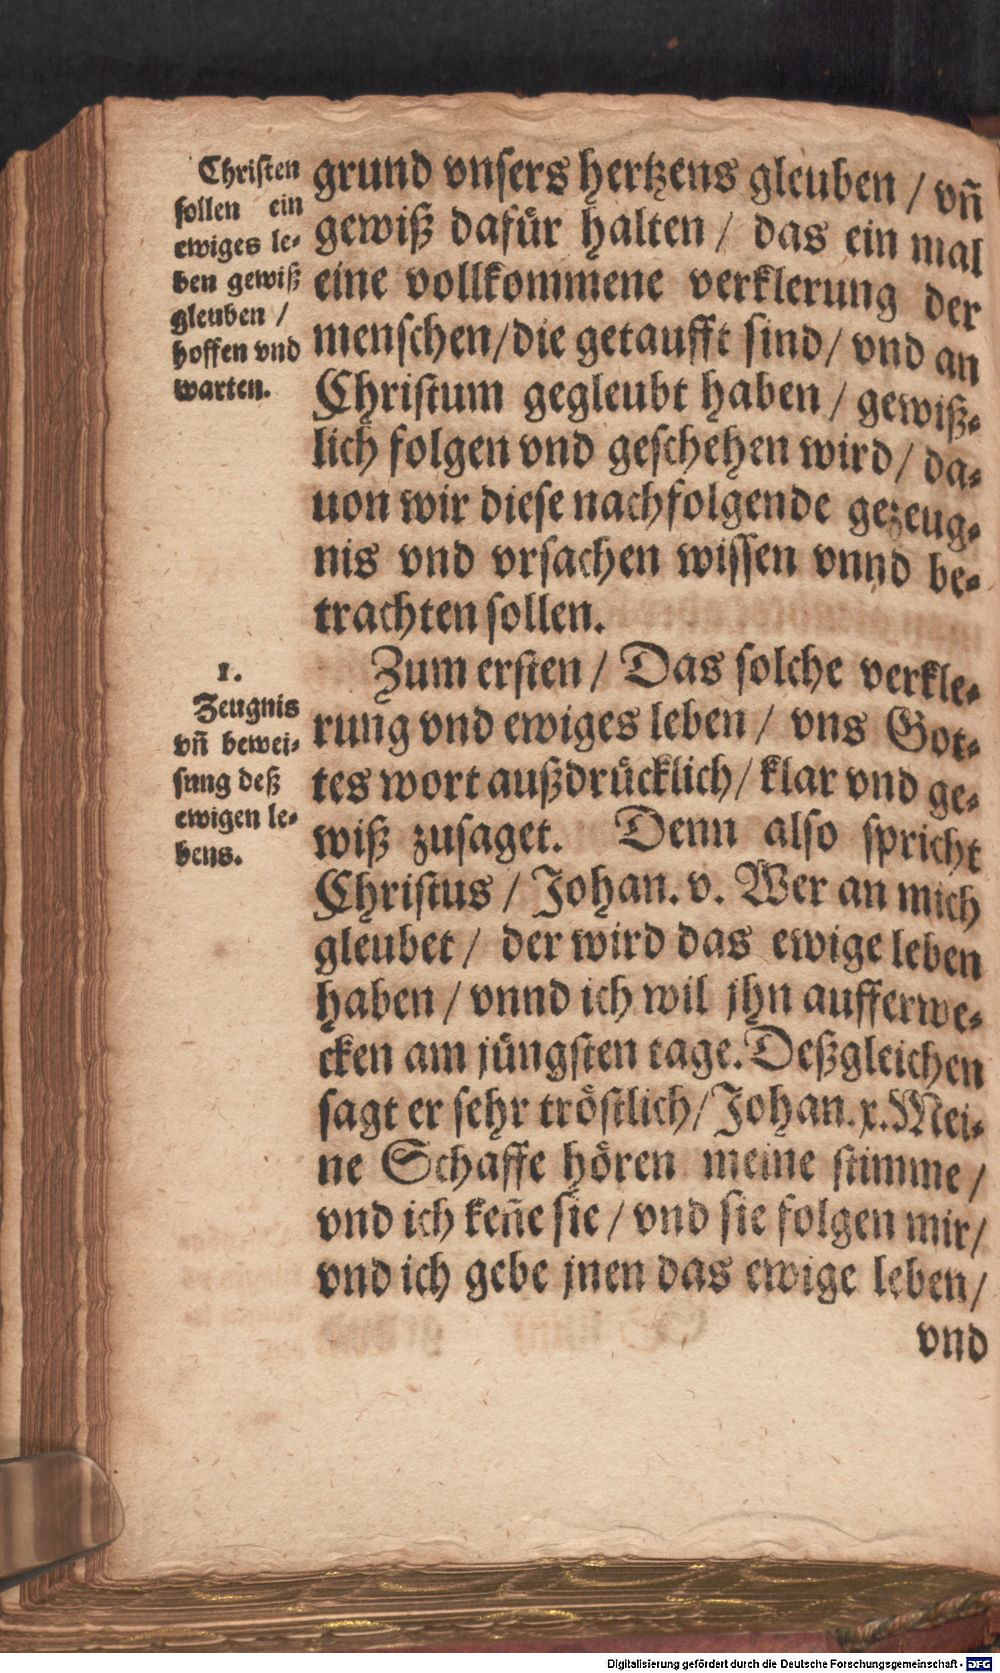 Christen
sollen ein
ewiges le⸗
ben gewiß
gleuben /
hoffen vnd
warten.
grund vnsers hertzens gleuben / vñ
gewiß dafür halten / das ein mal
eine vollkommene verklerung der
menschen/die getaufft sind/ vnd an
Christum gegleubt haben / gewiß⸗
lich folgen vnd geschehen wird/ da⸗
uon wir diese nachfolgende gezeug⸗
nis vnd vrsachen wissen vnnd be⸗
trachten sollen.
1.
Zeugnis
vñ bewei⸗
sung deß
ewigen le⸗
bens.
Zum ersten / Das solche verkle⸗
rung vnd ewiges leben / vns Got⸗
tes wort außdrücklich/ klar vnd ge⸗
wiß zusaget. Denn also spricht
Christus / Johan. v. Wer an mich
gleubet / der wird das ewige leben
haben / vnnd ich wil jhn aufferwe⸗
cken am jüngsten tage. Deßgleichen
sagt er sehr tröstlich/ Johan. x. Mei⸗
ne Schaffe hören meine stimme /
vnd ich keñe sie / vnd sie folgen mir/
vnd ich gebe jnen das ewige leben/
vnd
Digitalisierung gefördert durch die Deutsche Forschungsgemeinschaft - DFG